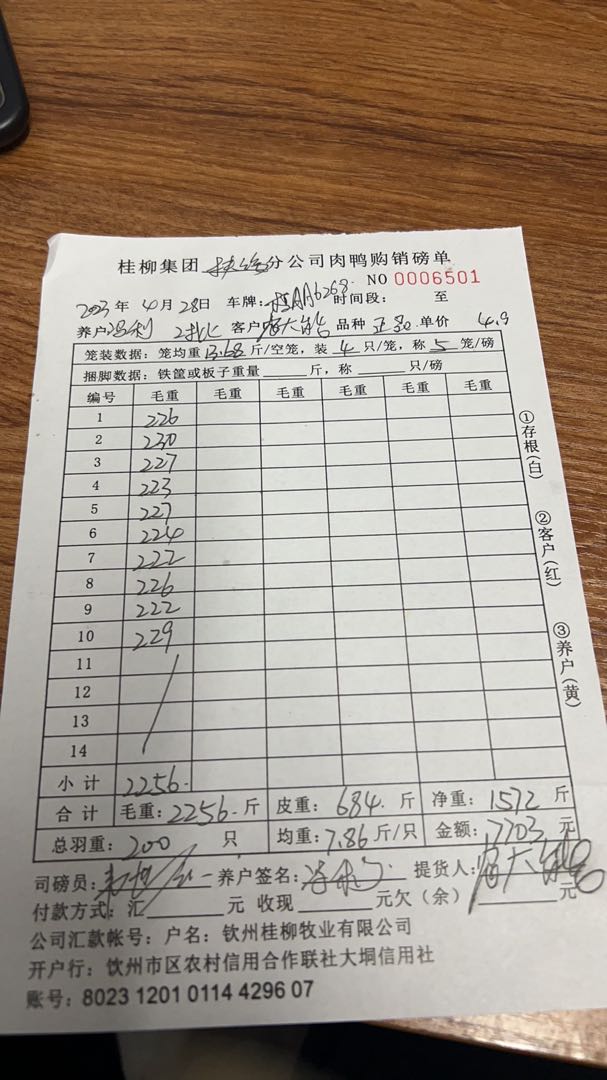 桂柳集团 分公司肉鸭购销磅单
NO 0006501
2023年 4月28日 车牌: 桂AA6268 时间段: 至
养户 冯利 2批 客户 大 品种 正 单价 4.9
笼装数据: 笼均重 13.68 斤/空笼, 装 4 只/笼, 称 5 笼/磅
捆脚数据: 铁筐或板子重量 斤, 称 只/磅
编号 毛重 毛重 毛重 毛重 毛重 毛重
1 226
2 230
3 227
4 223
5 227
6 224
7 222
8 226
9 222
10 229
11
12
13
14
小计 2256.
合计 毛重: 2256. 斤 皮重: 684. 斤 净重: 1572 斤
总羽重: 200 只 均重: 7.86 斤/只 金额: 7703 元
司磅员: 养户签名: 提货人:
付款方式: 汇 元 收现 元欠(余) 元
公司汇款帐号: 户名: 钦州桂柳牧业有限公司
开户行: 饮州市区农村信用合作联社大垌信用社
账号: 8023 1201 0114 4296 07
①存根(白)
②客户(红)
③养户(黄)